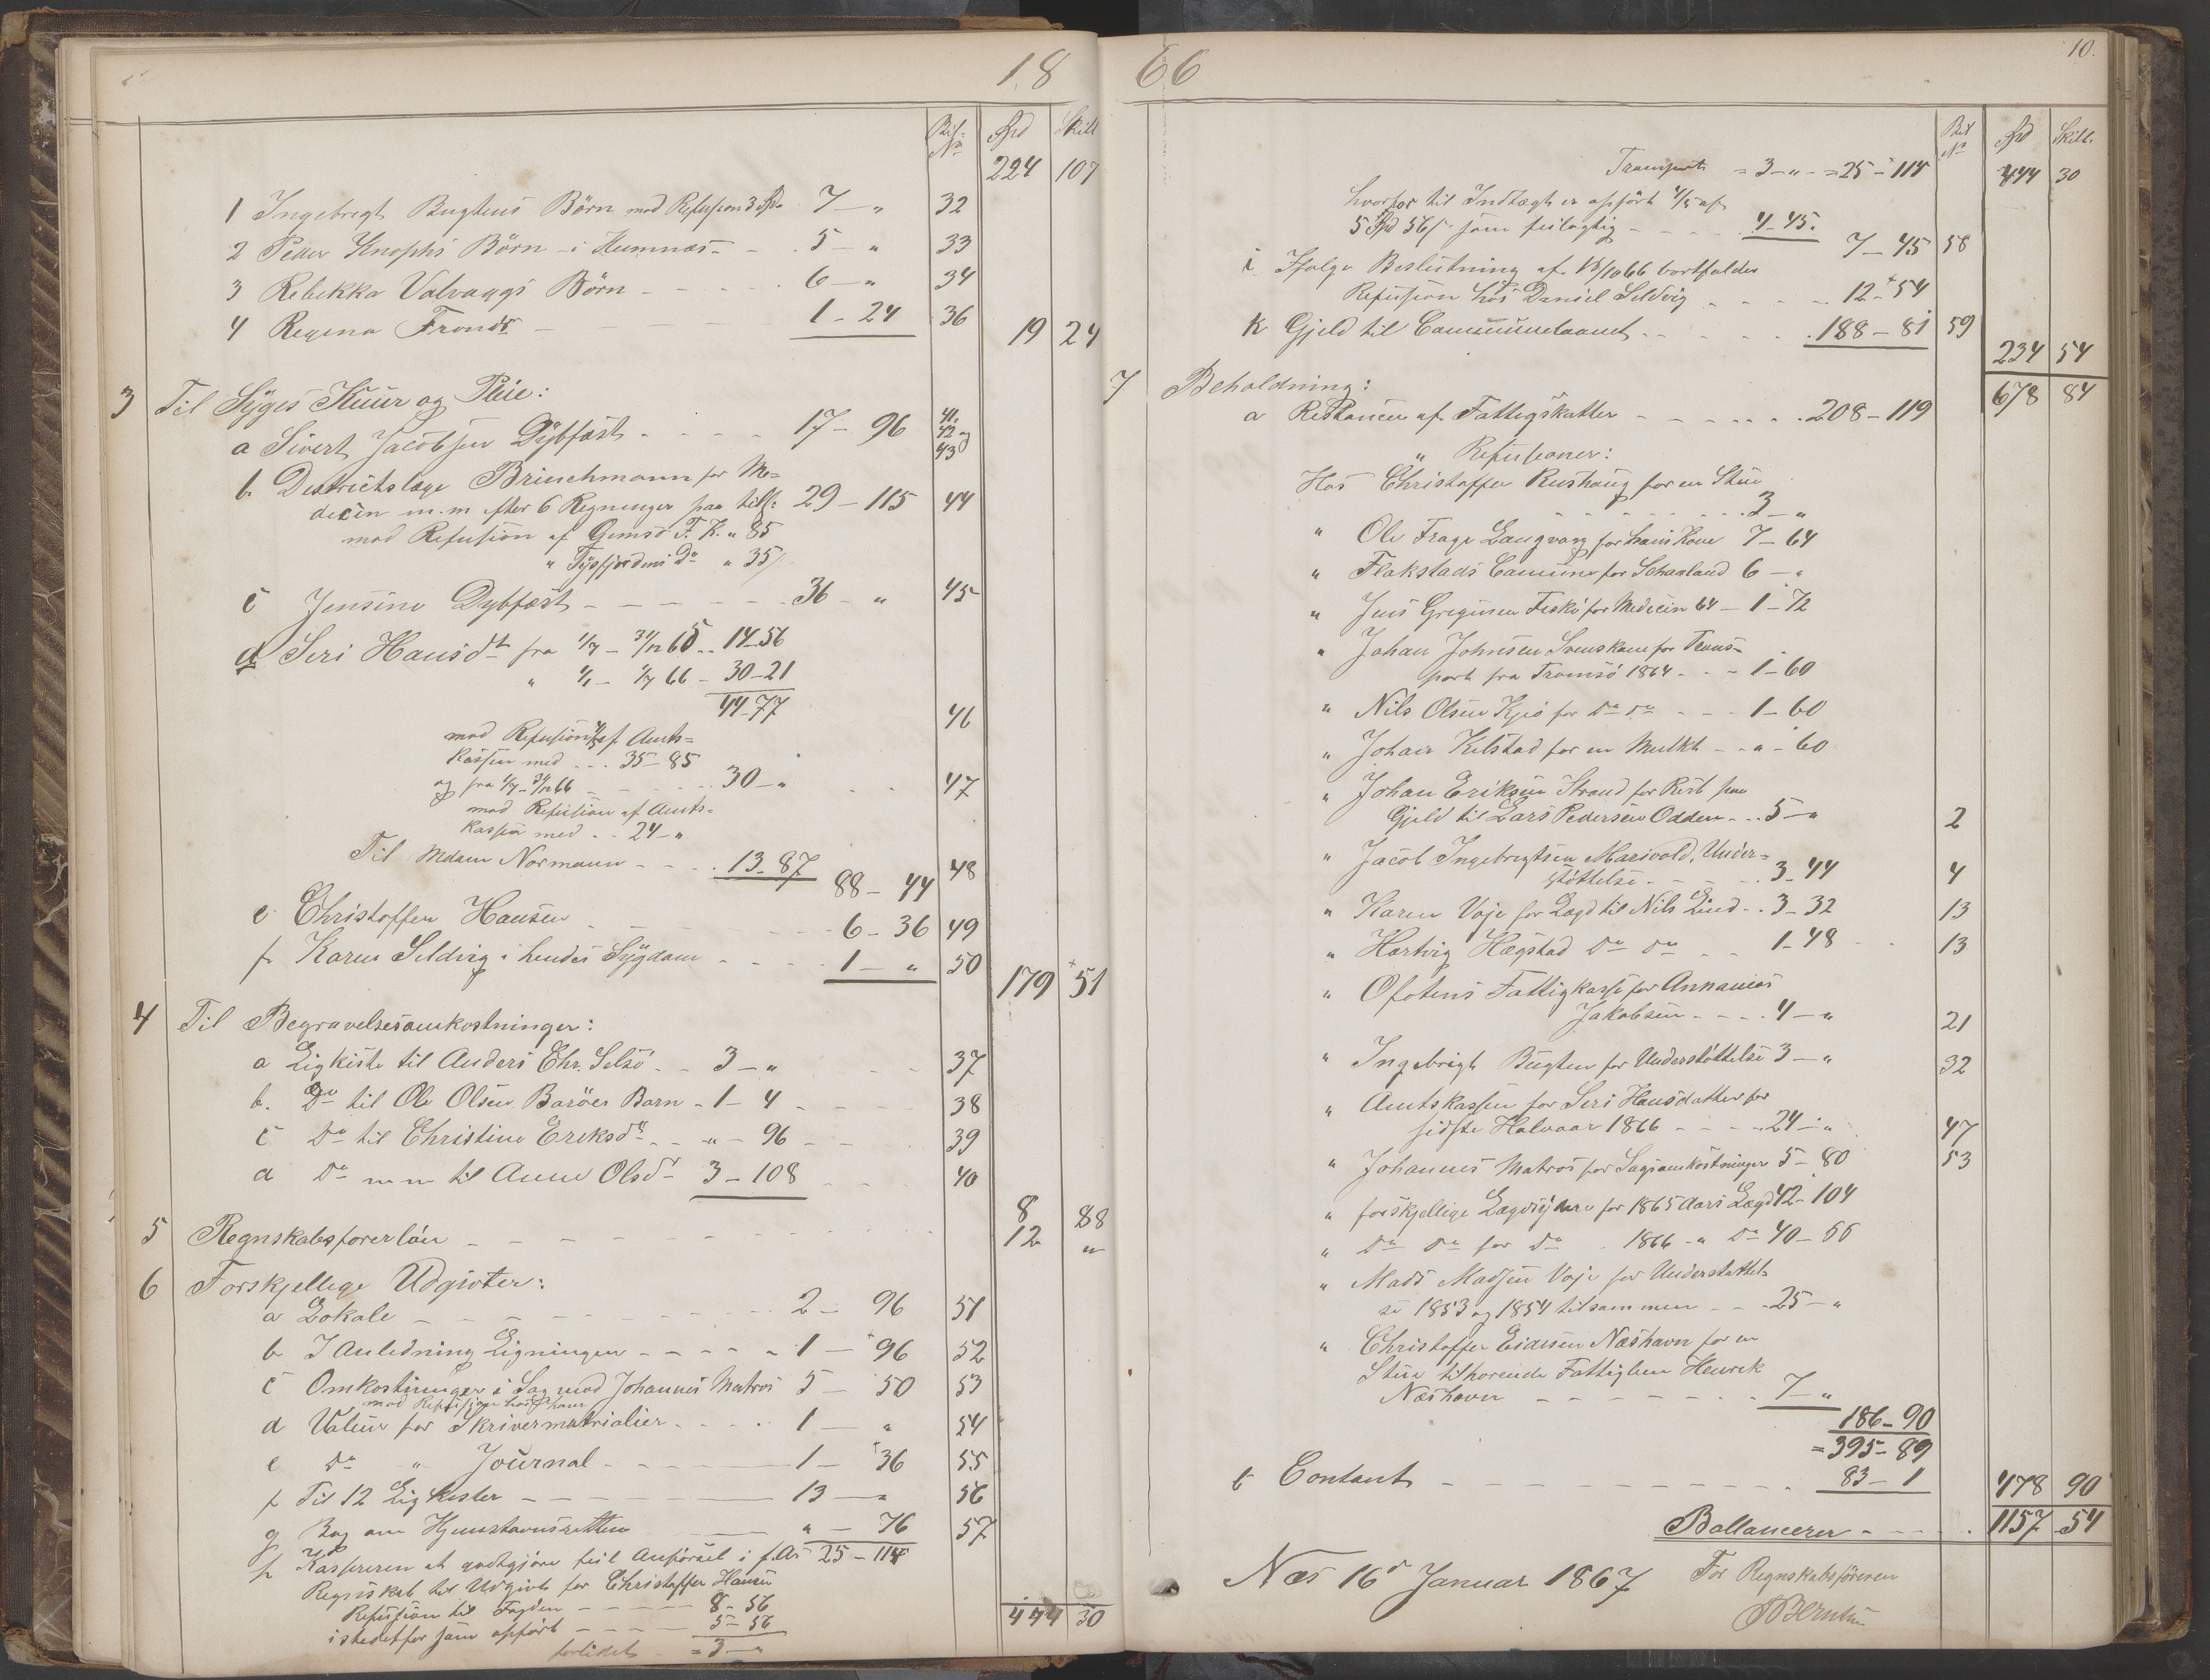 18
Bil. No Spd Skill
224 107
1 Ingebregt Bugtens Börn mod Refusion 3 Spd. 7 — " 32
2 Peder Knophs Börn i Hemnæs - - 5 — " 33
3 Rebekka Valvaags Börn - - - - 6 — " 34
4 Regina Tronds - 1 - 24 36 19 24
3 Til Syges Kuur og Pleie:
a Sivert Jacobsen Dybfæst - - - - 17 - 96 41. 42 og 43
b. Destrictslæge Brinchmann for Me=
decin m.m efter 6 Regninger paa tils: 29 - 115 44
mod Refusion af Gimsø F. K. " 85
" Tysfjordens Do " 35/
c Jensine Dybfæst - - - - - - 36 - " 45
d Seri Hansdt fra 1/7 - 31/12 65 .. 14-56
" 1/1 - 1/7 66 - 30-21
44-77 46
mod Refusion af Amts=
kassen med ... 35-85
og fra 1/7 - 31/12 66 - - - - 30 - " 47
mod Refusion af Amts=
kassen med .. 24 - "
Til Mdam Normann - - - 13-87 88 - 44 48
e Christoffer Hansen - - - 6 - 36 49
f Karen Seldvig i hendes Sygdom - - - - 1 - " 50 179 51
4 Til Begravelsesomkostninger:
a Ligkiste til Anders Chr. Selsö - - 3 - " 37
b. Do til Ole Olsen Baröes Barn - 1 - 4 38
c Do til Christine Eriksdr - - " - 96 39
d Do m m til Anne Olsdr 3 - 108 40
8 88
5 Regnskabsförerlön - - - - - - 12 "
6 Forskjellige Udgivter:
a Lokale - - - - - - 2 - 96 51
b I Anledning Ligningen - - - - - 1 - 96 52
c Omkostninger i Sag mod Johannes Matros 5 - 50 53
mod Refusion hos ham
d Valeur for Skrivermatrialier - - - - 1 - " 54
e Do " Journal - - - 1 - 36 55
f Til 12 Ligkister - - - 13 - " 56
g Bog om Hjemstavnsretten " - 76 57
h Kassereren at godtgjöre feil Anförsel i f. A. 25 - 114
Regnskab til Udgivt for Christoffer Hansen
Refusion til Fogden - - - - 8 - 56
istedetfor som opfört - - - - 5 - 56
forlidet = 3 - "
444 30
66
10.
Bil No Spd Skill.
Transport = 3 - " - = 25 - 114 444 30
hvorfor til Indtægt er opfört 4/5 af
5 Spd 56/ som feilagtig - - - - 4-45. 7-45 58
i Ifølge Beslutning af 13/10 66 bortfaldes
Refusion hos Daniel Seldvig - - - - 12-54
k Gjeld til Communelaanet - - - - 188-81 59
234 54
678 84
7 Beholdning:
a Restancen af Fattigskatter - - - - - 208-119
" Refusioner:
Hos Christoffer Rushaug for en Stue
- - - - - 3 - "
" Ole Frage Langvarg for hans Kone 7-64
" Flakstads Comune for Schaaland 6 - "
" Jens Gregusen Feskö for Medecin 64 - 1-72
" Johan Johnsen Svenskam for Trans=
port fra Tromsö 1864 - - - 1-60
" Nils Olsen Kjeö for Do Do - - - 1-60
" Johan Kilstad for en Mulkt - - " - 60
" Johan Eriksen Strand for Rest paa
Gjeld til Lars Pedersen Odden - - 5 - " 2
" Jacob Ingebregtsen Marivold, Under=
støttelse - - - - 3-44 4
" Karen Voje for Lægd til Nils Lind - . 3-32 13
" Hartvig Hægstad Do Do - - 1-48 13
" Ofotens Fattigkasse for Annanias
Jakobsen - - - - 4 - " 21
" Ingebrigt Bugten for Understöttelse 3 - " 32
" Amtskassen for Seri Hansdatter for
sidste Halvaar 1866 - - - - 24 - " 47
" Johannes Matros for Sagsomkostninger 5-80 53
" forskjellige Lægdsydere for 1865 Aars Lægd 42-104
" Do Do for Do 1866 - " Do 40-66
" Mads Madsen Voje for Understøttel-
se 1853 og 1854 tilsammen - - - 25 - "
" Christoffer Eidesen Næshavn for en
Stue tilhorende Fattiglem Henrek
Næshavn - - - - - - 7 - "
186-90
= 395-89
b Contant - - - - - - 83-1 478 90
Ballancerer - - - - 1157 54
Næs 16d Januar 1867
For Regnskabsföreren